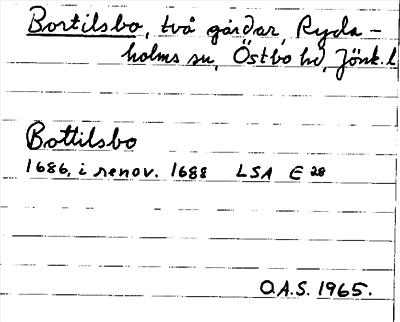 Bortilsbo, två gårdar, Ryda-
holms sn, Östbo hd, Jönk. l
Bottilsbo
1686, i renov. 1688 LSA E 28
O.A.S. 1965.